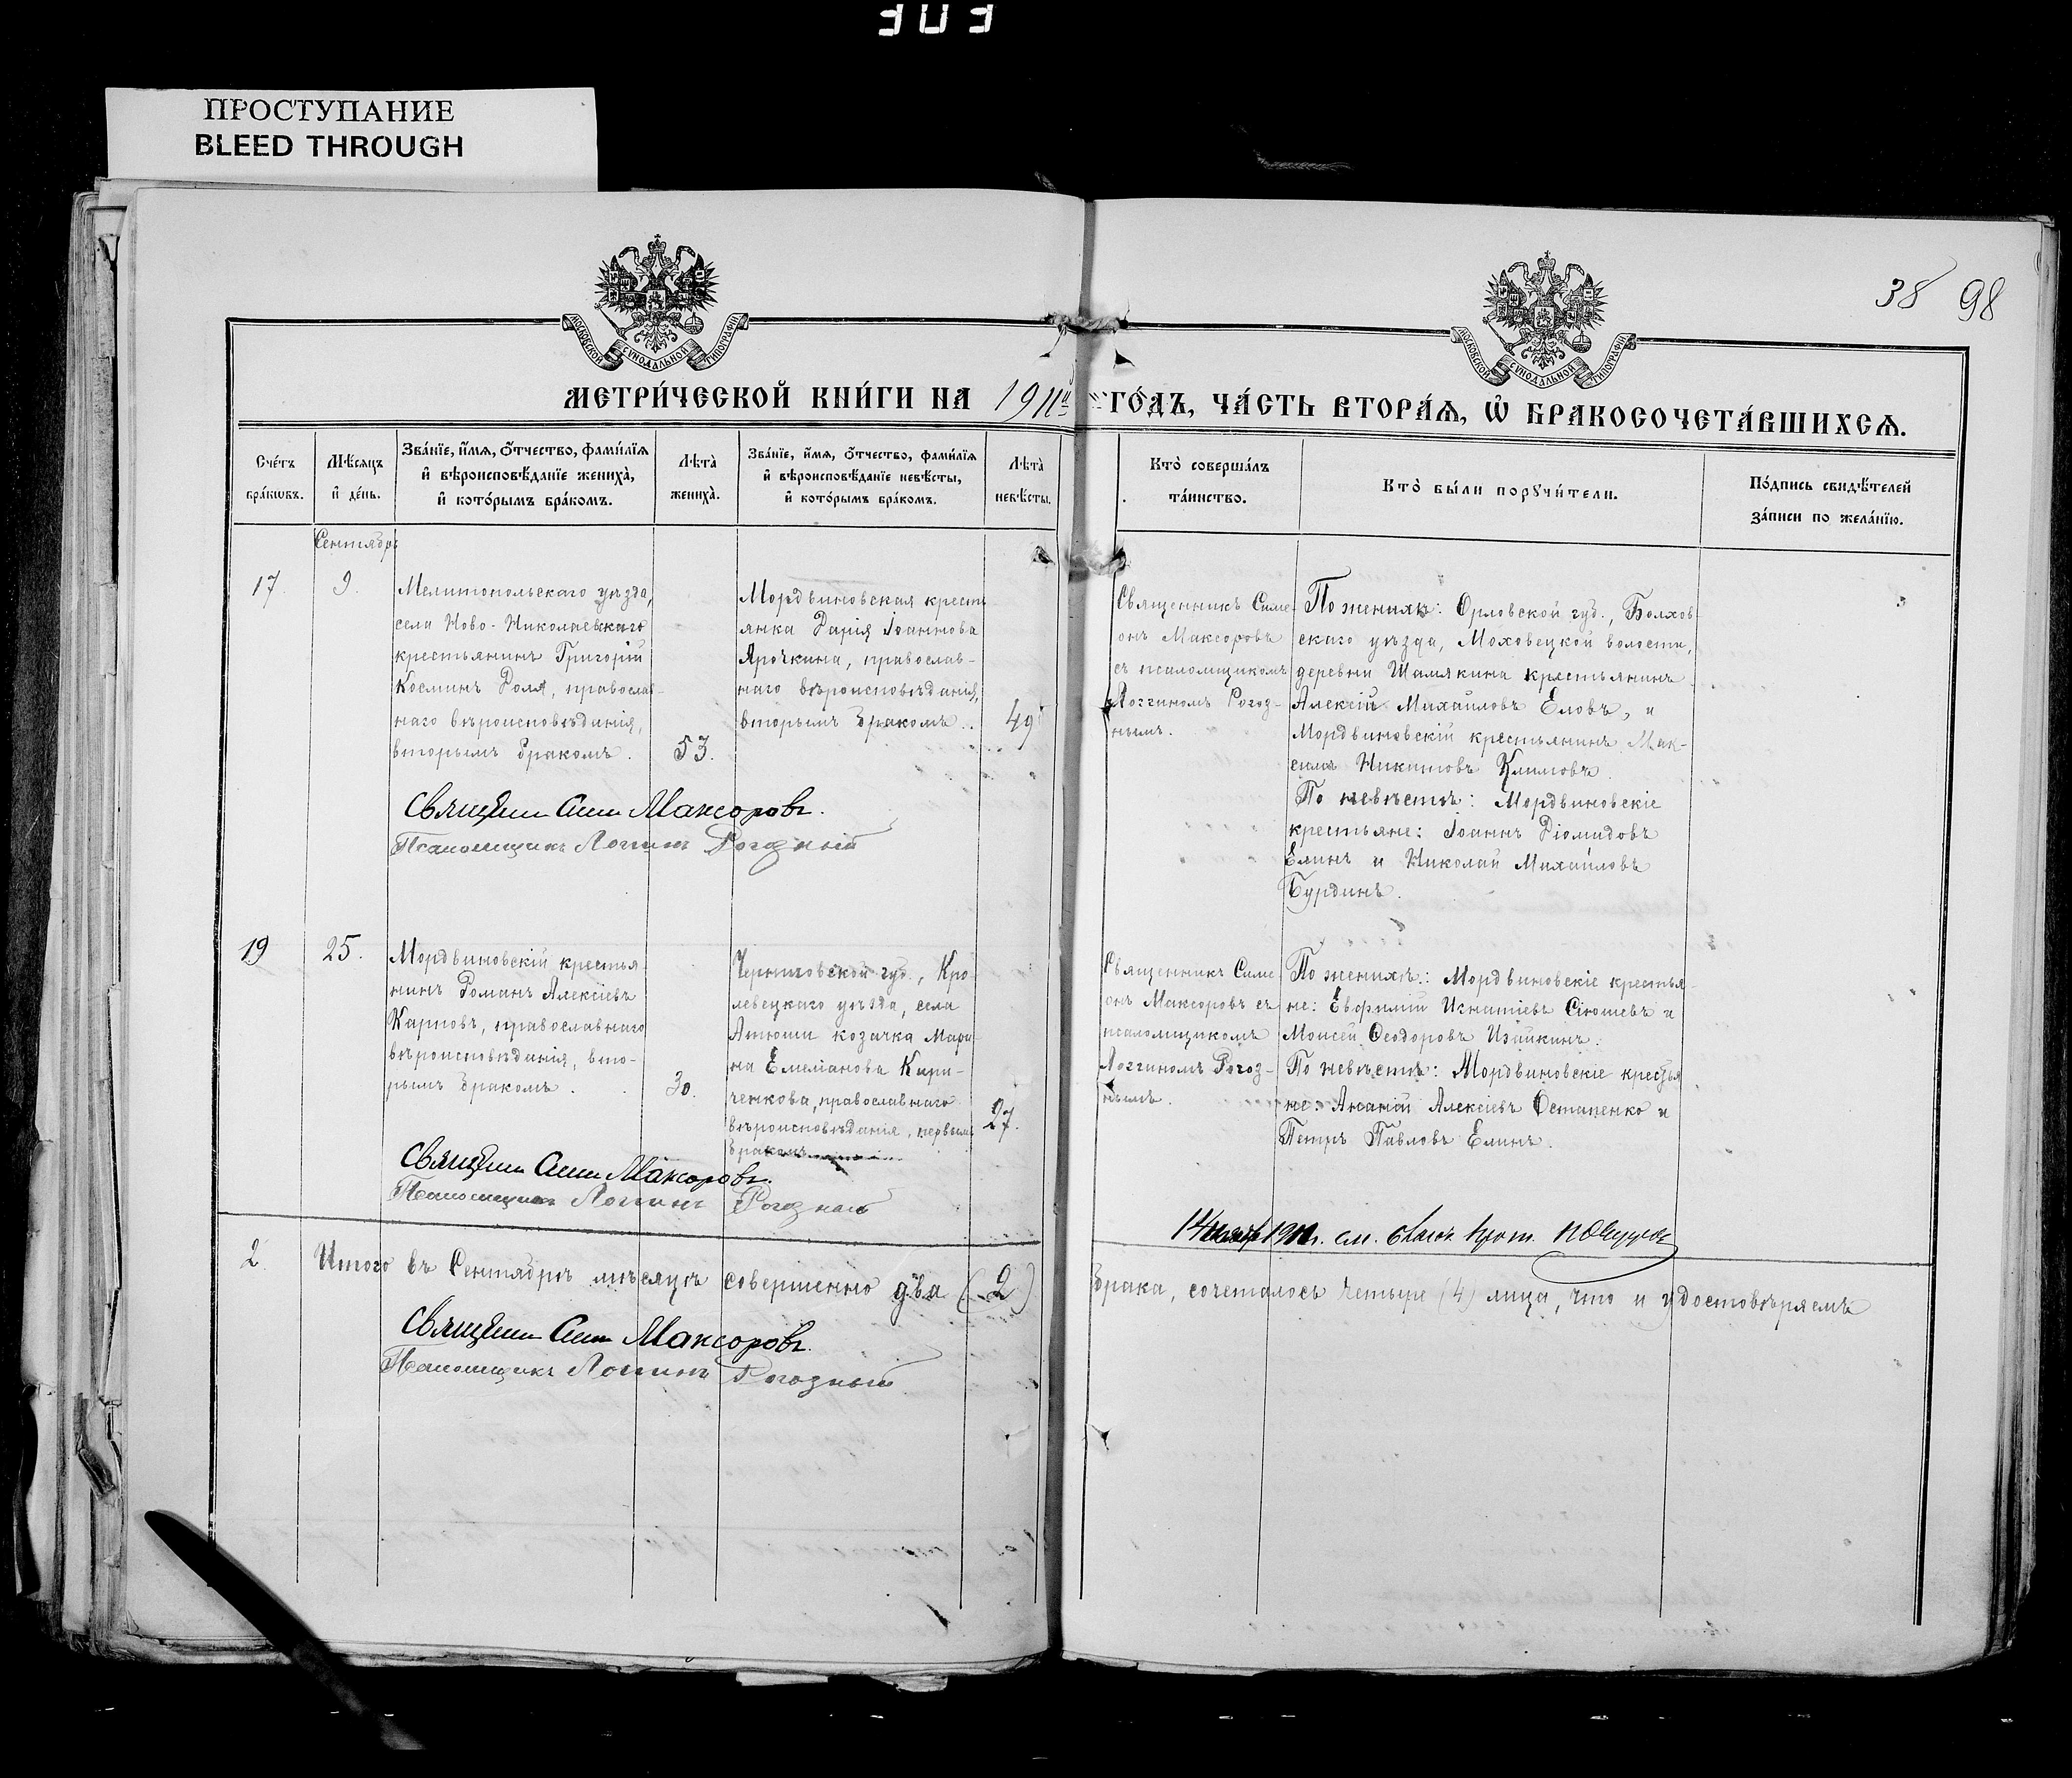 ПРОСТУПАНИЕ
BLEED THROUGH
38 98
МОСКОВСКОЙ СѴНОДАЛЬНОЙ ТИПОГРАФІИ
МОСКОВСКОЙ СѴНОДАЛЬНОЙ ТИПОГРАФІИ
МЕТРИ́ЧЕСКОЙ КНИ́ГИ НА 1911й ГО́ДЪ, ЧА́СТЬ ВТОРА́Ѧ, Ѡ҆ БРАКОСОЧЕТА́ВШИХСѦ.
Сче́тъ
бра́кѡвъ.
Мѣ́сяцъ
и҆ де́нь.
Зва́нїе, и҆́мѧ, ѻ҆́тчество, фами́лїѧ
и҆ вѣроисповѣ́данїе жениха̀,
и҆ кото́рымъ бра́комъ.
Лѣта̀
жениха̀.
Зва́нїе, и҆́мѧ, ѻ҆́тчество, фами́лїѧ
и҆ вѣроисповѣ́данїе невѣ́сты,
и҆ кото́рымъ бра́комъ.
Лѣта̀
невѣ́сты.
Кто̀ соверша́лъ
та́инство.
Кто̀ бы́ли порꙋчи́тели.
По́дпись свидѣ́телей
за́писи по жела́нїю.
Сентябрь
17. 9.
Мелитопольскаго уѣзда,
села Ново-Николаевскаго
крестьянинъ Григорій
Косминъ Роля, православ-
наго вѣроисповѣданія,
вторымъ бракомъ.
53.
Мордвиновская кресть
янка Дарія Іоаннова
Ярочкина, православ-
наго вѣроисповѣданія,
вторымъ бракомъ..
49
Священникъ Симе-
онъ Максоровъ
съ псаломщикомъ
Логгиномъ Рогоз-
нымъ.
По женихѣ: Орловской губ., Болхов
скаго уѣзда, Моховецкой волости,
деревни Шамякина крестьянинъ
Алексій Михаиловъ Еловъ, и
Мордвиновскій крестьянинъ Мак-
симъ Никитовъ Климовъ.
По невѣстѣ: Мордвиновскіе
крестьяне: Іоаннъ Діомидовъ
Елинъ и Николай Михаиловъ
Бурдинъ.
Священ. Сим. Максоровъ.
Псаломщикъ Логгинъ Рогозный
19 25.
Мордвиновскій крестья
нинъ Романъ Алексіевъ
Карповъ, православнаго
вѣроисповѣданія, вто-
рымъ бракомъ.
30.
Черниговской губ., Кро
левецкаго уѣзда, села
Атюши козачка Мари
на Емеліанова Кири-
ченкова, православнаго
вѣроисповѣданія, первымъ
бракомъ
27.
Священникъ Симе
онъ Максоровъ съ
псаломщикомъ
Логгиномъ Рогоз-
нымъ.
По женихѣ: Мордвиновскіе крестья-
не: Евфимій Игнатіевъ Сѣюшевъ и
Моисей Ѳеодоровъ Изайкинъ.
По невѣстѣ: Мордвиновскіе крестья
не: Ананій Алексіевъ Остапенко и
Петръ Павловъ Елинъ.
Священ. Сим. Максоровъ.
Псаломщикъ Логгинъ Рогозный
1911г. см.
2. Итого въ Сентябрѣ мѣсяцѣ совершено два (2) брака, сочеталось четыре (4) лица, что и удостовѣряемъ
Священ. Сим. Максоровъ.
Псаломщикъ Логгинъ Рогозный